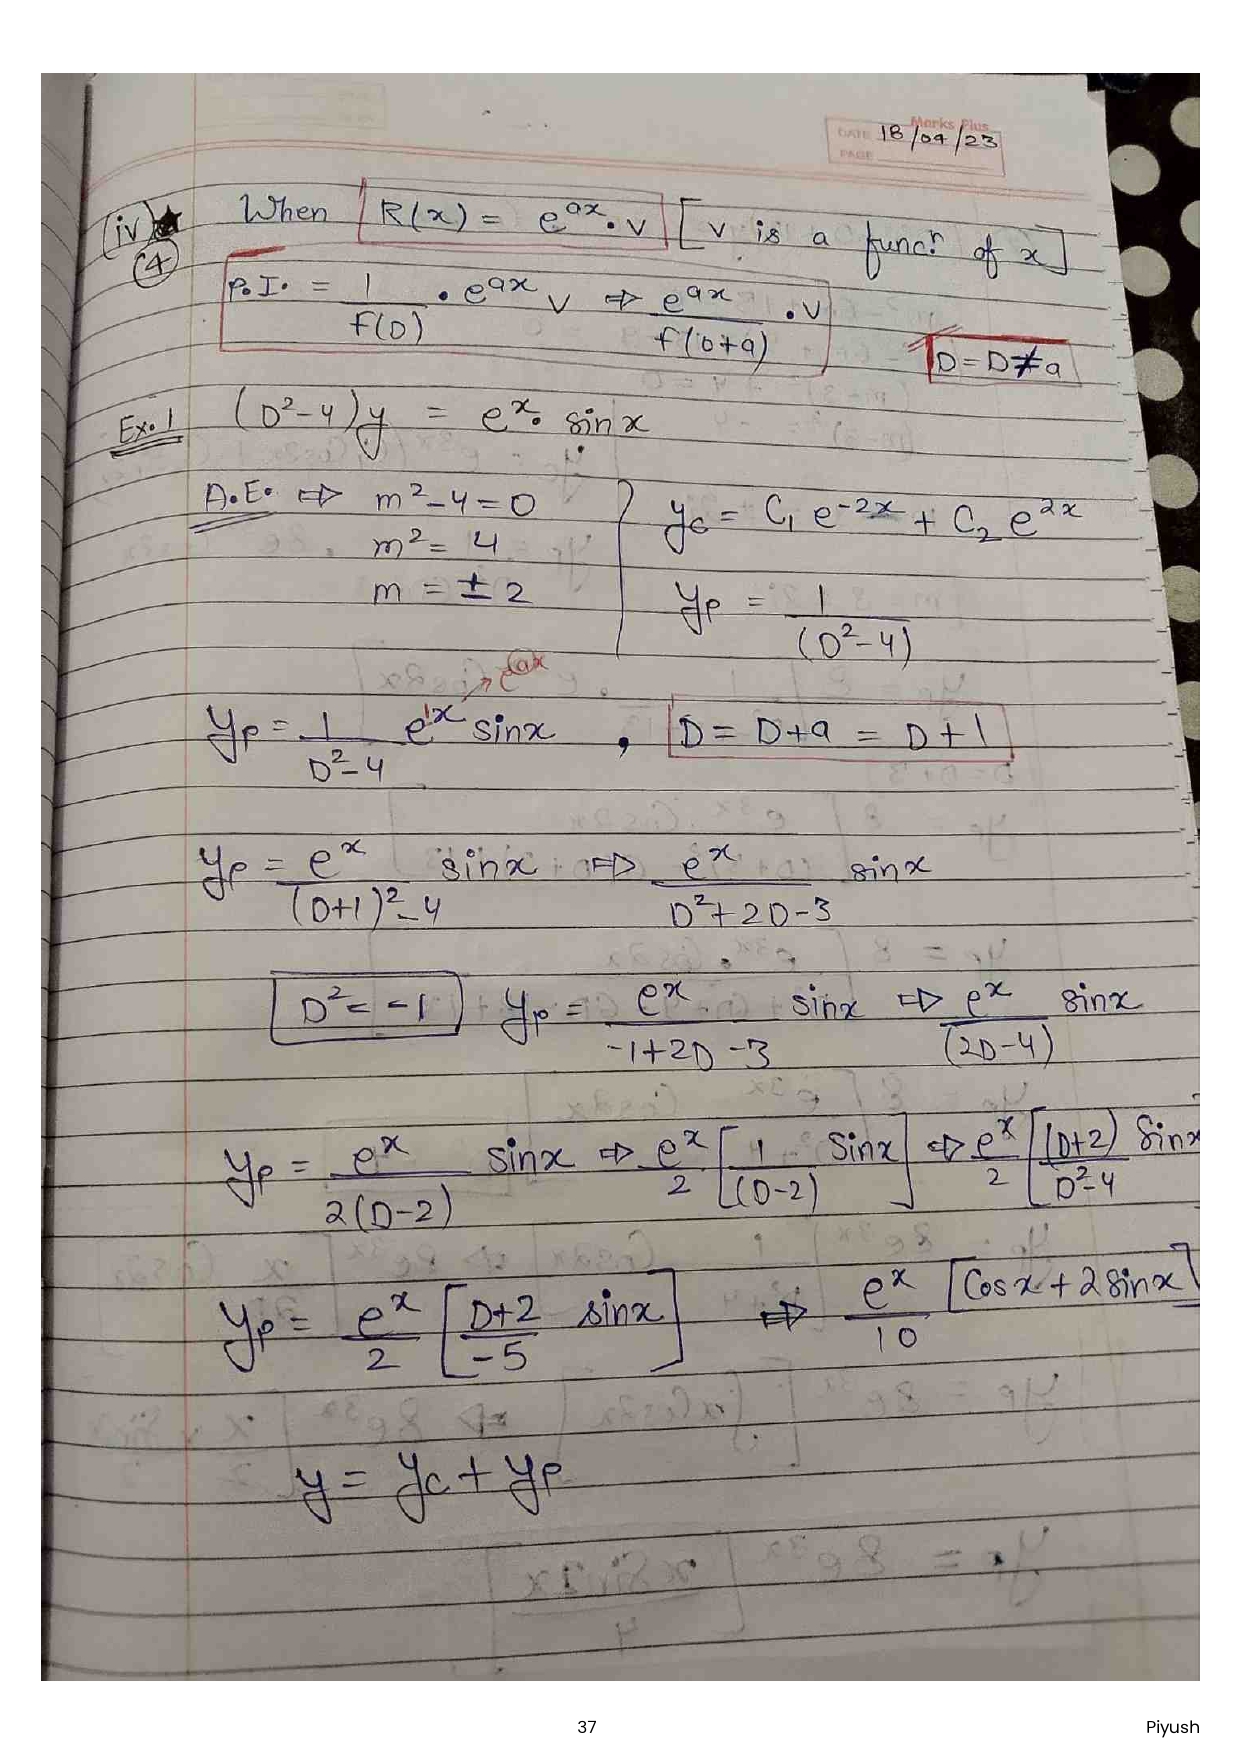 Marks Plus
DATE 18/04/23
PAGE
(iv)★ When R(x) = e^ax . v [v is a funcn. of x]
(4)
P.I. = 1/f(D) . e^ax v ⇒ e^ax/f(D+a) . v
D = D+a
Ex.1 (D²-4)y = e^x. sinx
A.E. ⇒ m²-4=0
m² = 4
m = ±2
yc = C₁ e^-2x + C₂ e^2x
yp = 1/(D²-4)
e^ax
yp = 1/D²-4 e^1x sinx , D = D+a = D+1
yp = e^x/(D+1)²-4 sinx ⇒ e^x/D²+2D-3 sinx
D² = -1 yp = e^x/-1+2D-3 sinx ⇒ e^x/(2D-4) sinx
yp = e^x/2(D-2) sinx ⇒ e^x/2 [1/(D-2) Sinx] ⇒ e^x/2 [(D+2)/D²-4 Sinx
yp = e^x/2 [D+2/-5 sinx] ⇒ e^x/10 [Cosx + 2sinx]
y = yc + yp
37
Piyush